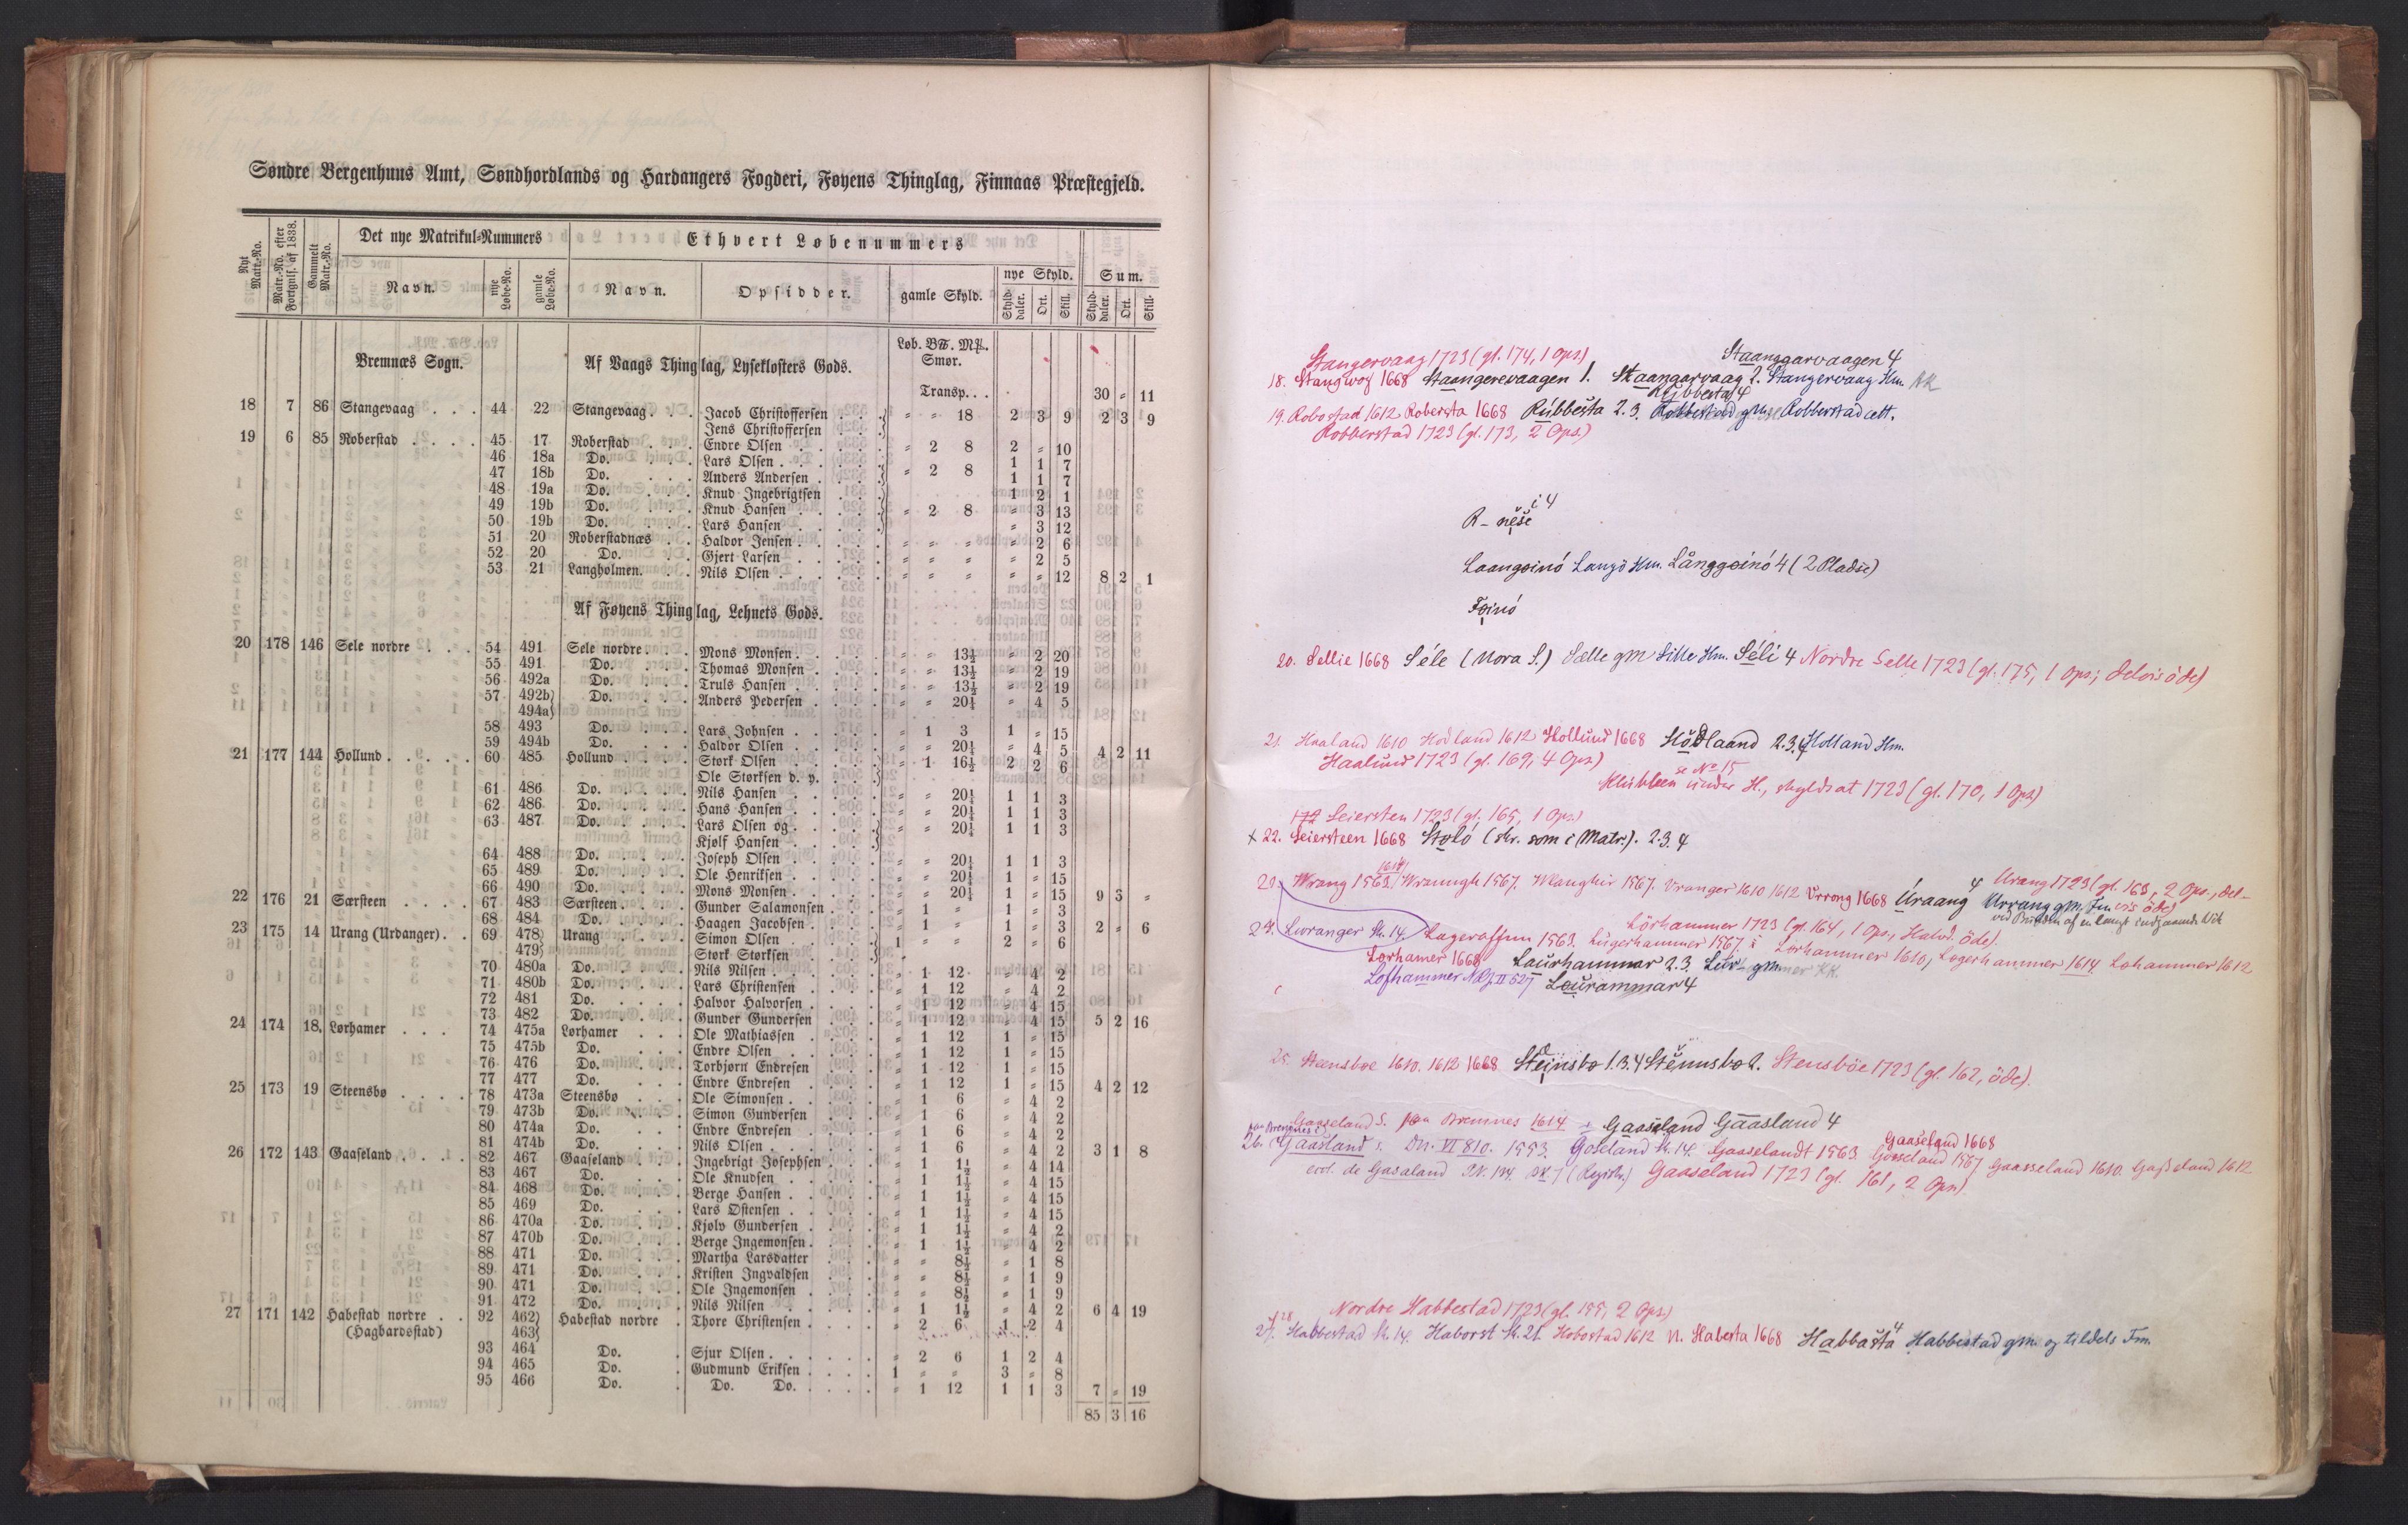 Søndre Bergenhuus Amt, Søndhordlands og Hardangers Fogderi, Føyens Thinglag, Finnaas Præstegjeld.
Nyt Matr.-No.
Matr.-No. efter Fortgnls. af 1838.
Gammelt Matr.-No.
Det nye Matrikul-Nummers
Ethvert Løbenummers
Navn.
nye Løbe-No.
gamle Løbe-No.
Navn.
Opsidder.
gamle Skyld.
nye Skyld.
Sum.
Skylddaler. Ort. Skill.
Skylddaler. Ort. Skill.
Bremnæs Sogn.
Af Vaags Thinglag, Lysekløsters Gods.
Løb. B℔. M℔.
Smør.
Transp. . . 30 " 11
18 7 86 Stangevaag . . . 44 22 Stangevaag . . . Jacob Christoffersen " " 18 2 3 9 2 3 9
Jens Christoffersen
19 6 85 Roberstad . . . . 45 17 Roberstad . . . Endre Olsen " 2 8 2 " 10
46 18a Do. Lars Olsen " 2 8 1 1 7
47 18b Do. Anders Andersen 1 1 7
48 19a Do. Knud Ingebrigtsen 1 2 1
49 19b Do. Knud Hansen " 2 8 " 3 13
50 19b Do. Lars Hansen " 3 12
51 20 Roberstadnæs . . Haldor Jensen " " " " 2 6
52 20 Do. Gjert Larsen " " " " 2 5
53 21 Langholmen. Nils Olsen " " " " " 12 8 2 1
Af Føyens Thinglag, Lehnets Gods.
20 178 146 Sele nordre . . . 54 491 Sele nordre . . . Mons Monsen " " 13½ " 2 20
55 491 Do. Thomas Monsen " " 13½ " 2 19
56 492a Do. Truls Hansen " " 13½ " 2 19
57 492b Do. Anders Pedersen " " 20¼ " 4 5
494a
58 493 Do. Lars Johnsen " 1 3 1 " 15
59 494b Do. Haldor Olsen " " 20¼ " 4 5 4 2 11
21 177 144 Hollund . . . . . 60 485 Hollund Størk Olsen " 1 16½ 2 2 6
Ole Størksen d. y.
61 486 Do. Nils Hansen " " 20¼ 1 1 3
62 486 Do. Hans Hansen " " 20¼ 1 1 3
63 487 Do. Lars Olsen og " " 20¼ 1 1 3
Kjølf Hansen
64 488 Do. Joseph Olsen " " 20¼ 1 1 3
65 489 Do. Ole Henriksen " " 20¼ 1 " 15
66 490 Do. Mons Monsen " " 20¼ 1 " 15 9 3 "
22 176 21 Særsteen . . . . 67 483 Særsteen Gunder Salamonsen " 1 " 1 " 3
68 484 Do. Haagen Jacobsen " 1 " 1 " 3 2 " 6
23 175 14 Urang (Urdanger) . . 69 478 Urang Simon Olsen 1 " " 2 " 6
479 Størk Størksen
70 480a Do. Nils Nilsen " 1 12 " 4 2
71 480b Do. Lars Christensen " 1 12 " 4 2
72 481 Do. Halvor Halvorsen " 1 12 " 4 15
73 482 Do. Gunder Gundersen " 1 12 " 4 15 5 2 16
24 174 18 Lørhamer . . . 74 475a Lørhamer Ole Mathiassen " 1 12 1 " 15
75 475b Do. Endre Olsen " 1 12 1 " 15
76 476 Do. Torbjørn Endresen " 1 12 1 " 15
77 477 Do. Endre Endresen " 1 12 1 " 15 4 2 12
25 173 19 Steensbø . . . . 78 473a Steensbø Ole Simonsen " 1 6 " 4 2
79 473b Do. Simon Gundersen " 1 6 " 4 2
80 474a Do. Endre Endresen " 1 6 " 4 2
81 474b Do. Nils Olsen " 1 6 " 4 2 3 1 8
26 172 143 Gaaseland . . . . 82 467 Gaaseland Ingebrigt Josephsen " 1 1½ " 4 14
83 467 Do. Ole Knudsen " 1 1½ " 4 15
84 468 Do. Berge Hansen " 1 1½ " 4 15
85 469 Do. Lars Østensen " 1 1½ " 4 15
86 470a Do. Kjølv Gundersen " 1 1½ " 4 2
87 470b Do. Berge Ingemonsen " 1 1½ " 4 2
88 471 Do. Martha Larsdatter " " 8½ " 1 8
89 471 Do. Kristen Ingvaldsen " " 8½ " 1 9
90 471 Do. Ole Ingemonsen " " 8½ " 1 9
91 472 Do. Nils Nilsen " 1 1½ " 4 2 6 4 19
27 171 142 Habestad nordre . . 92 462 Habestad nordre . Thore Christensen " 2 6 1 2 4
(Hagbardsstad) 463
93 464 Do. Sjur Olsen " 2 6 1 2 4
94 465 Do. Gudmund Eriksen 1 " " 3 " 8
95 466 Do. Do. Do. " 1 12 1 1 3 7 " 19
85 3 16
Stangervaag 1723 (gl. 174, 1 Ops.)
Staanggarvaagen 4
18. Stangwog 1668 Staangerevaagen 1. Staangarvaag 2. Stangervaag Hm.
Rŭbbesta 4
19. Robostad 1612 Robersta 1668 Rŭbbešta 2.3. Robbestad gm. Robberstad cett.
Robberstad 1723 (gl. 173, 2 Ops.)
R-neše i 4
Laangoinó Langö Hm. Långgoinó 4 (2 Pladse)
Foinó
20. Sellie 1668 Séle (Mora S.) Sælle gm Sille Hm. Séli 4 Nordre Selle 1723 (gl. 175, 1 Ops; delvis öde)
21. Haaland 1610 Hodland 1612 Hollund 1668 Hŏdlaand 2.3.4 Holland Hm.
Haalund 1723 (gl. 169, 4 Ops.)
se No 15
Klubben under H., skyldsat 1723 (gl. 170, 1 Ops)
172 Seiersten 1723 (gl. 165, 1 Ops.)
x 22. Seiersteen 1668 Stoló (skr. som i Matr.). 2.3.4
Urang 1723 (gl. 163, 2 Ops., delvis öde)
23. Wrang 1563. Wranngh 1567. Wlanghir 1567. Vranger 1610 1612 Vrrong 1668 Úraang 4 Urrang gm. Fm
ved Bunden af en langt indgaaende Vik
Lörhammer 1723 (gl. 164, 1 Ops., Halvd. öde).
24. Lworanger St. 14. Lageraffnn 1563. Lugerhammer 1567. Lorhammer 1610, Logerhammer 1614 Lohammer 1612
Lorhamer 1668 Laurhammar 2.3. Lur- gm
Lofhammer NRJ. II 527 Laurammar 4
25. Steensboe 1610. 1612 1668 Steinsbo 1.3.4 Stĕnnsbo 2. Stensböe 1723 (gl. 162, öde).
Gaaseland S. paa Bremnes 1614 Gaaseland Gaasland 4
paa Bremnes i
Gaaseland 1668
26. Gaasland: Dn. VI 810. 1553. Goseland St. 14. Gaaselandt 1563 Gosseland 1567 Gaasseland 1610. Gaſseland 1612
eccl. de Gasaland (Registr.) Gaaseland 1723 (gl. 161, 2 Ops)
Nordre Habbestad 1723 (gl. 155, 2 Ops.)
27. Habbestad St. 14. Haborst St. 21. Hobostad 1612 N. Habesta 1668 Habbašta 4 Habbestad gm. og tildels Fm.